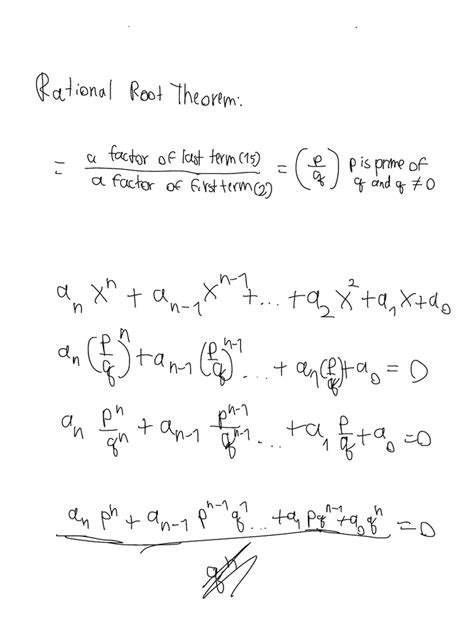 Rational Root Theorem:
= a factor of last term(15) / a factor of first term(2) = (p/q) p is prime of q and q ≠ 0
aₙ xⁿ + aₙ₋₁ xⁿ⁻¹ + ... + a₂ x² + a₁ x + a₀
aₙ (p/q)ⁿ + aₙ₋₁ (p/q)ⁿ⁻¹ ... + a₁ (p/q) + a₀ = 0
aₙ pⁿ/qⁿ + aₙ₋₁ pⁿ⁻¹/qⁿ⁻¹ ... + a₁ p/q + a₀ = 0
aₙ pⁿ + aₙ₋₁ pⁿ⁻¹ q¹ ... + a₁ p qⁿ⁻¹ + a₀ qⁿ = 0
qⁿ